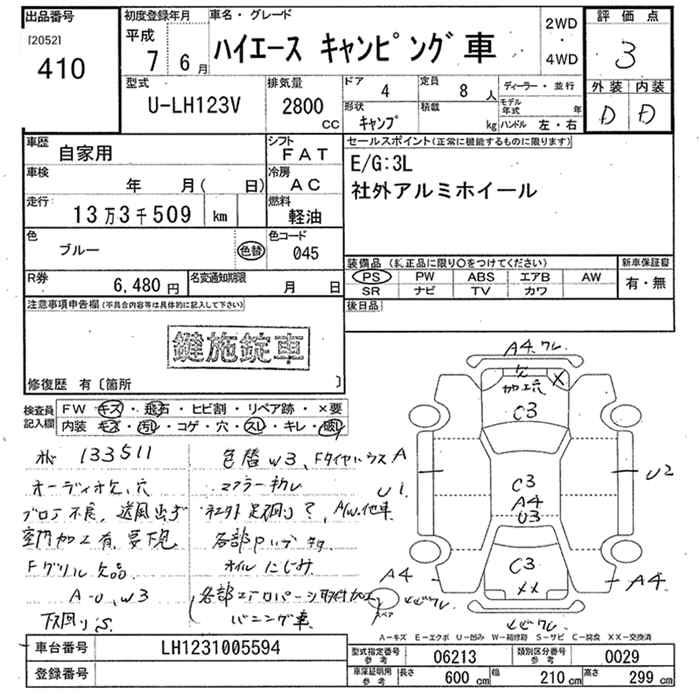 出品番号
[2052]
410
初度登録年月
平成
7年6月
車名・グレード
ハイエース キャンピング車
2WD
・
4WD
評価点
3
外装 内装
D D
型式
U-LH123V
排気量
2800
CC
ドア
4
定員
8人
形状
キャンプ
積載
kg
ディーラー・並行
モデル年式 年
ハンドル 左・右
車歴
自家用
シフト
FAT
車検
年 月( 日)
冷房
AC
走行
13万3千509 km
燃料
軽油
色
ブルー
色替
色コード
045
R券
6,480円
名変通知期限
月 日
セールスポイント(正常に機能するものに限ります)
E/G:3L
社外アルミホイール
装備品(純正品に限り○をつけてください)
新車保証書
PS PW ABS エアB AW
SR ナビ TV カワ
有・無
後日品
注意事項申告欄(不具合内容等は具体的に記入して下さい)
鍵施錠車
修復歴 有〔箇所 〕
検査員記入欄
FW キズ・飛石・ヒビ割・リペア跡・×要
内装 キズ・汚レ・コゲ・穴・スレ・キレ・破レ
133511
オーディオ欠、穴
ブロア不良、送風出ず
室内加工有、要下見
Fグリル欠品
A-U、W3
下回りS
色替W3、FタイヤハウスA
マフラー
社外足廻り?、AW他車
各部Pハゲ
オイルにじみ
各部エアロパーツ取付加工
バニング車
A4、ワレ
欠
加工穴
X
C3
C3
A4
U3
U1
U2
C3
XX
A4
A4
スペア
A-キズ E-エクボ U-凹み W-補修跡 S-サビ C-腐食 XX-交換済
車台番号
LH1231005594
登録番号
型式指定番号
参考
06213
類別区分番号
参考
0029
車庫証明用
参考
長さ
600 cm
幅
210 cm
高さ
299 cm